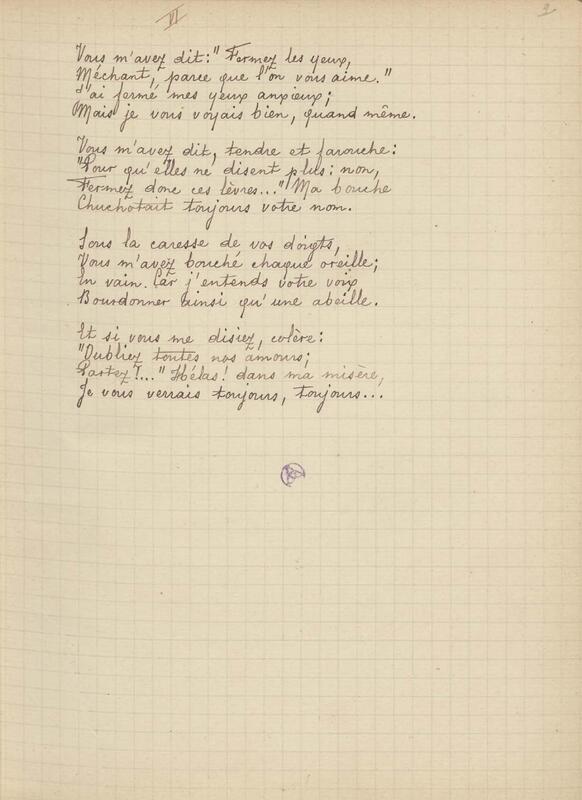 VI
9
Vous m'avez dit: "Fermez les yeux,
Méchant, parce que l'on vous aime."
J'ai fermé mes yeux anxieux;
Mais je vous voyais bien, quand même.
Vous m'avez dit, tendre et farouche:
"Pour qu'elles ne disent plus: non,
Fermez donc ces lèvres..." Ma bouche
Chuchotait toujours votre nom.
Sous la caresse de vos doigts,
Vous m'avez bouché chaque oreille;
En vain. Car j'entends votre voix
Bourdonner ainsi qu'une abeille.
Et si vous me disiez, colère:
"Oubliez toutes nos amours;
Partez!..." Hélas! dans ma misère,
Je vous verrais toujours, toujours...